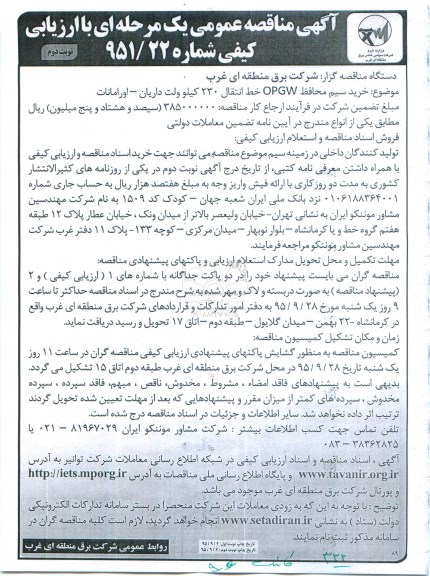 آگهی مناقصه عمومی یک مرحله ای با ارزیابی
کیفی شماره ۹۵۱/۲۲
نوبت دوم
دستگاه مناقصه گزار: شرکت برق منطقه ای غرب
موضوع: خرید سیم محافظ OPGW خط انتقال ۲۳۰ کیلو ولت داریان – اورامانات
مبلغ تضمین شرکت در فرآیند ارجاع کار مناقصه: ۳۸۵۰۰۰۰۰۰ (سیصد و هشتاد و پنج میلیون) ریال
مطابق یکی از انواع مندرج در آیین نامه تضمین معاملات دولتی
فروش اسناد مناقصه و استعلام ارزیابی کیفی:
تولید کنندگان داخلی در زمینه سیم موضوع مناقصه می توانند جهت خرید اسناد مناقصه و ارزیابی کیفی
با همراه داشتن معرفی نامه کتبی، از تاریخ درج آگهی نوبت دوم در یکی از روزنامه های کثیرالانتشار
کشوری به مدت دو روزکاری با ارائه فیش واریز وجه به مبلغ هفتصد هزار ریال به حساب جاری شماره
۰۱۰۶۱۸۸۳۶۴۰۰۱ نزد بانک ملی ایران شعبه جهان – کودک کد ۱۵۰۹ به نام شرکت مهندسین
مشاور موننکو ایران به نشانی تهران- خیابان ولیعصر بالاتر از میدان ونک ، خیابان عطار پلاک ۱۲ طبقه
هفتم گروه خط و یا کرمانشاه – بلوار نوبهار – میدان مرکزی – کوچه ۱۳۳- پلاک ۱۱ دفتر غرب شرکت
مهندسین مشاور موننکو مراجعه فرمایند.
مهلت تکمیل و محل تحویل مدارک استعلام ارزیابی و پاکتهای پیشنهادی مناقصه:
مناقصه گران می بایست پیشنهاد خود را در دو پاکت جداگانه با شماره های ۱ (ارزیابی کیفی) و ۲
(پیشنهاد مناقصه) به صورت دربسته و لاک و مهر شده به شرح مندرج در اسناد مناقصه حداکثر تا ساعت
۹ روز یک شنبه مورخ ۹۵/۹/۲۸ به دفتر امور تدارکات و قراردادهای شرکت برق منطقه ای غرب واقع
در کرمانشاه – ۲۲ بهمن – میدان گلایول – طبقه دوم – اتاق ۱۷ تحویل و رسید دریافت نماید.
زمان و مکان تشکیل کمیسیون مناقصه:
کمیسیون مناقصه به منظور گشایش پاکتهای پیشنهادی ارزیابی کیفی مناقصه گران در ساعت ۱۱ روز
یک شنبه تاریخ ۹۵/۹/۲۸ در محل شرکت برق منطقه ای غرب طبقه دوم اتاق ۱۵ تشکیل می گردد.
بدیهی است به پیشنهادهای فاقد امضاء ، مشروط ، مخدوش، ناقص ، مبهم، فاقد سپرده ، سپرده
مخدوش ، سپرده های کمتر از میزان مقرر و پیشنهادهایی که بعد از مهلت تعیین شده تحویل گردند
ترتیب اثر داده نخواهد شد. سایر اطلاعات و جزئیات در اسناد مناقصه درج شده است.
تلفن تماس جهت کسب اطلاعات بیشتر : شرکت مشاور موننکو ایران ۸۱۹۶۷۰۲۹ – ۰۲۱ یا
۳۸۳۶۲۸۲۵ – ۰۸۳
آگهی ، اسناد مناقصه و اسناد ارزیابی کیفی در شبکه اطلاع رسانی معاملات شرکت توانیر به آدرس
www.tavanir.org.ir و پایگاه اطلاع رسانی ملی مناقصات به آدرس http://iets.mporg.ir
و پورتال شرکت برق منطقه ای غرب موجود می باشد.
توضیح : با توجه به این که به زودی معاملات این شرکت منحصرا در بستر سامانه تدارکات الکترونیکی
دولت (ستاد) به نشانی www.setadiran.ir انجام خواهد گردید، لازم است کلیه مناقصه گران در
سامانه مذکور ثبت نام نمایند.
تاریخ چاپ نوبت اول: ۹۵/۹/۶
تاریخ چاپ نوبت دوم: ۹۵/۹/۷
روابط عمومی شرکت برق منطقه ای غرب